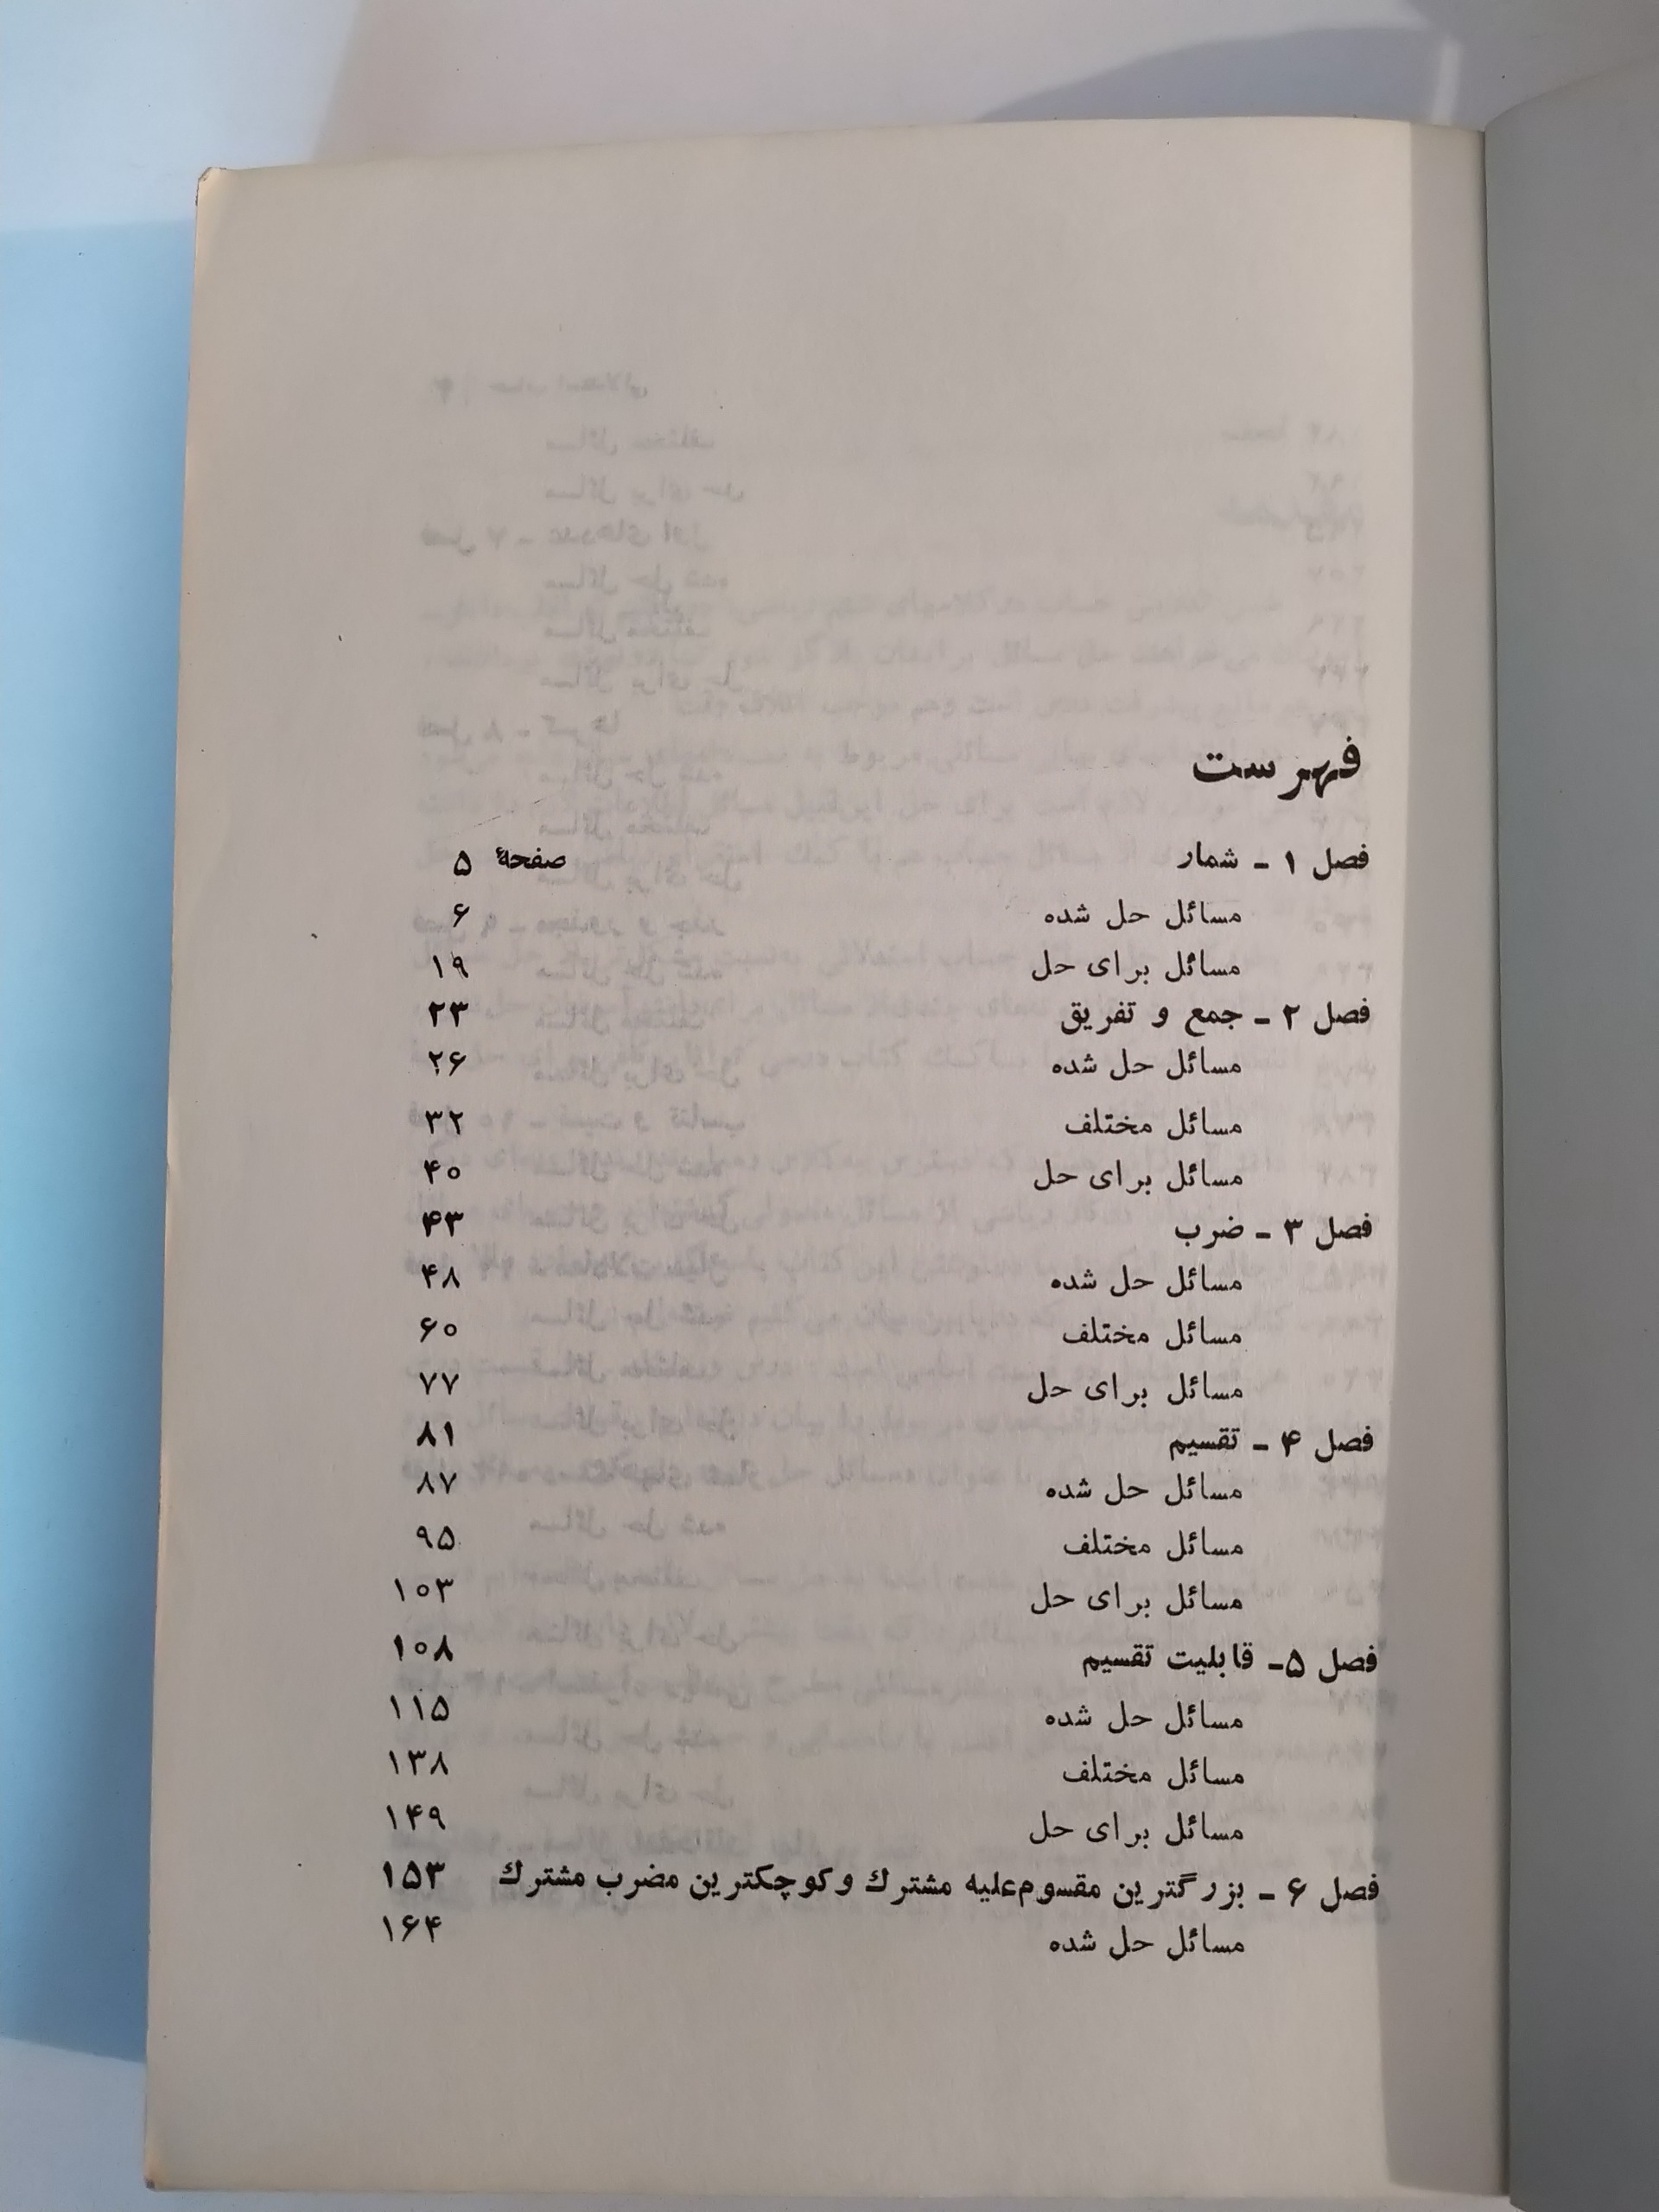 فهرست
فصل ۱ - شمار صفحهٔ ۵
مسائل حل شده ۶
مسائل برای حل ۱۹
فصل ۲ - جمع و تفریق ۲۳
مسائل حل شده ۲۶
مسائل مختلف ۳۲
مسائل برای حل ۴۰
فصل ۳ - ضرب ۴۳
مسائل حل شده ۴۸
مسائل مختلف ۶۰
مسائل برای حل ۷۷
فصل ۴ - تقسیم ۸۱
مسائل حل شده ۸۷
مسائل مختلف ۹۵
مسائل برای حل ۱۰۳
فصل ۵- قابلیت تقسیم ۱۰۸
مسائل حل شده ۱۱۵
مسائل مختلف ۱۳۸
مسائل برای حل ۱۴۹
فصل ۶ - بزرگترین مقسوم‌علیه مشترك و کوچکترین مضرب مشترك ۱۵۳
مسائل حل شده ۱۶۴